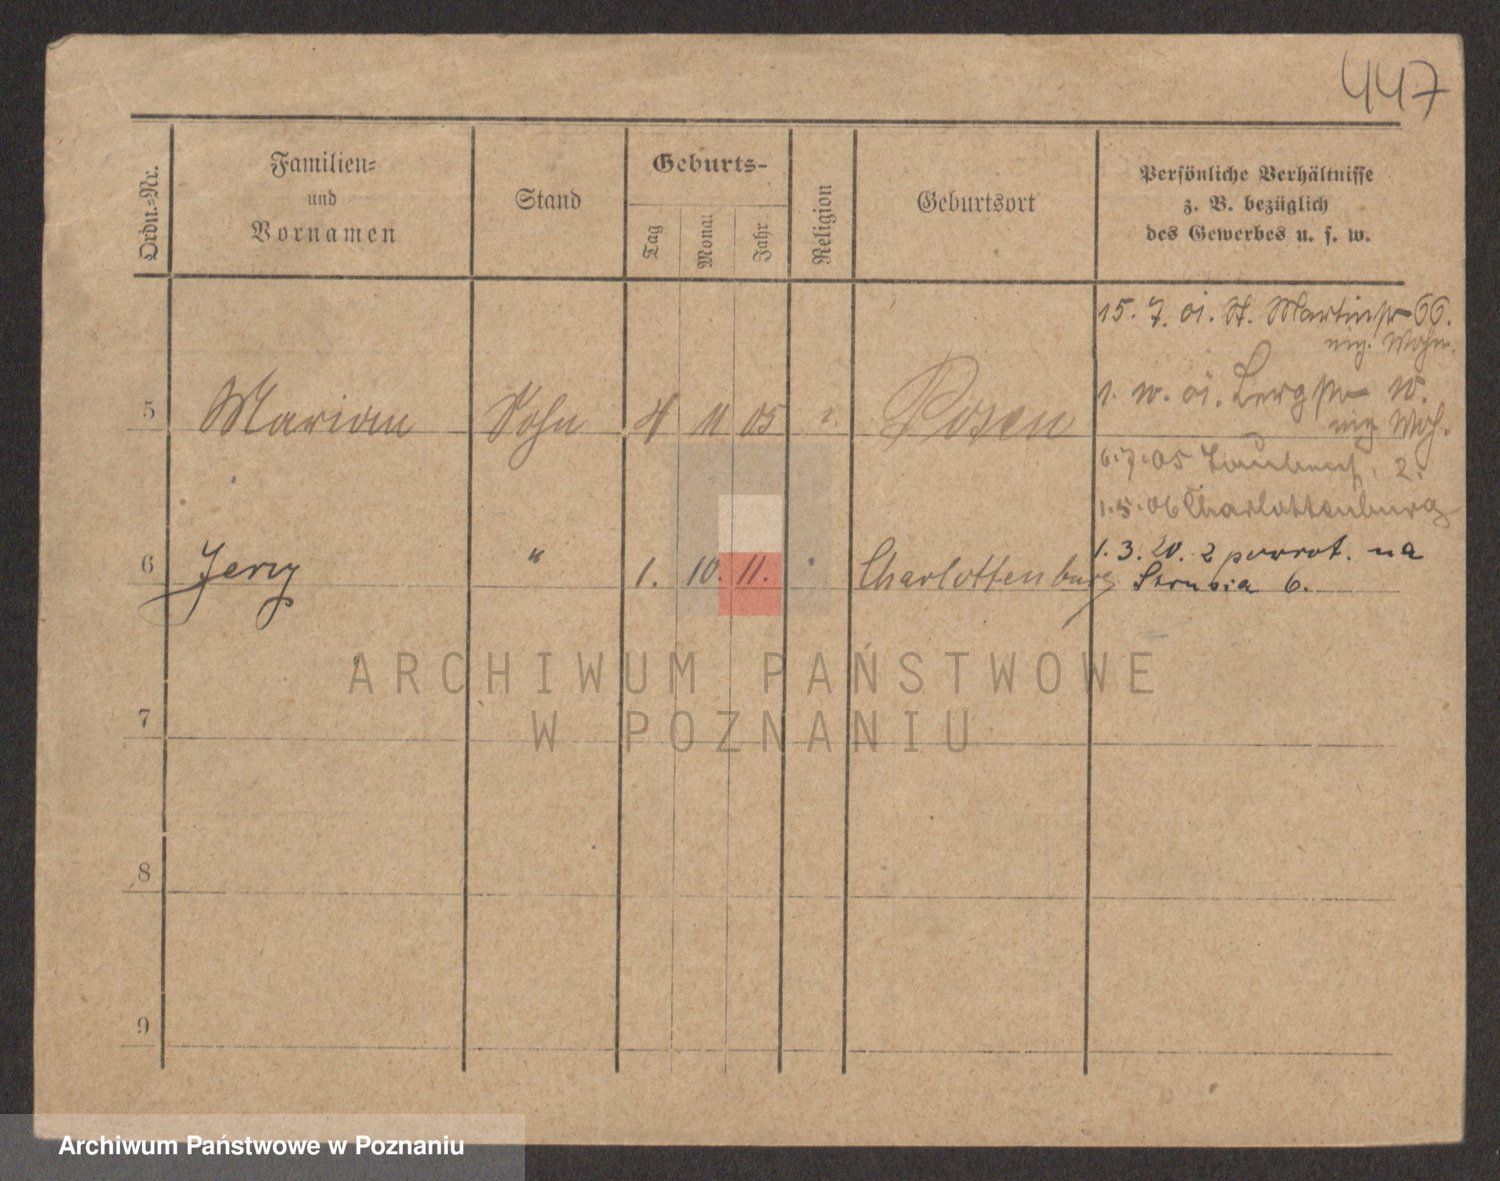 447
Ordn.-Nr.
Familien-
und
Vornamen
Stand
Geburts-
Tag
Monat
Jahr
Religion
Geburtsort
Persönliche Verhältnisse
z. B. bezüglich
des Gewerbes u. s. w.
15. 7. 01. St. Martinstr 66.
1. 10. 01. Bergstr
5 Marian Sohn 4 11 05 Posen
6.7.05 2.
1.5.06 Charlottenburg
6 Jerzy " 1. 10. 11. " Charlottenburg
1. 3. 20. z powrot. na
Strusia 6.
ARCHIWUM PAŃSTWOWE
W POZNANIU
7
8
9
Archiwum Państwowe w Poznaniu